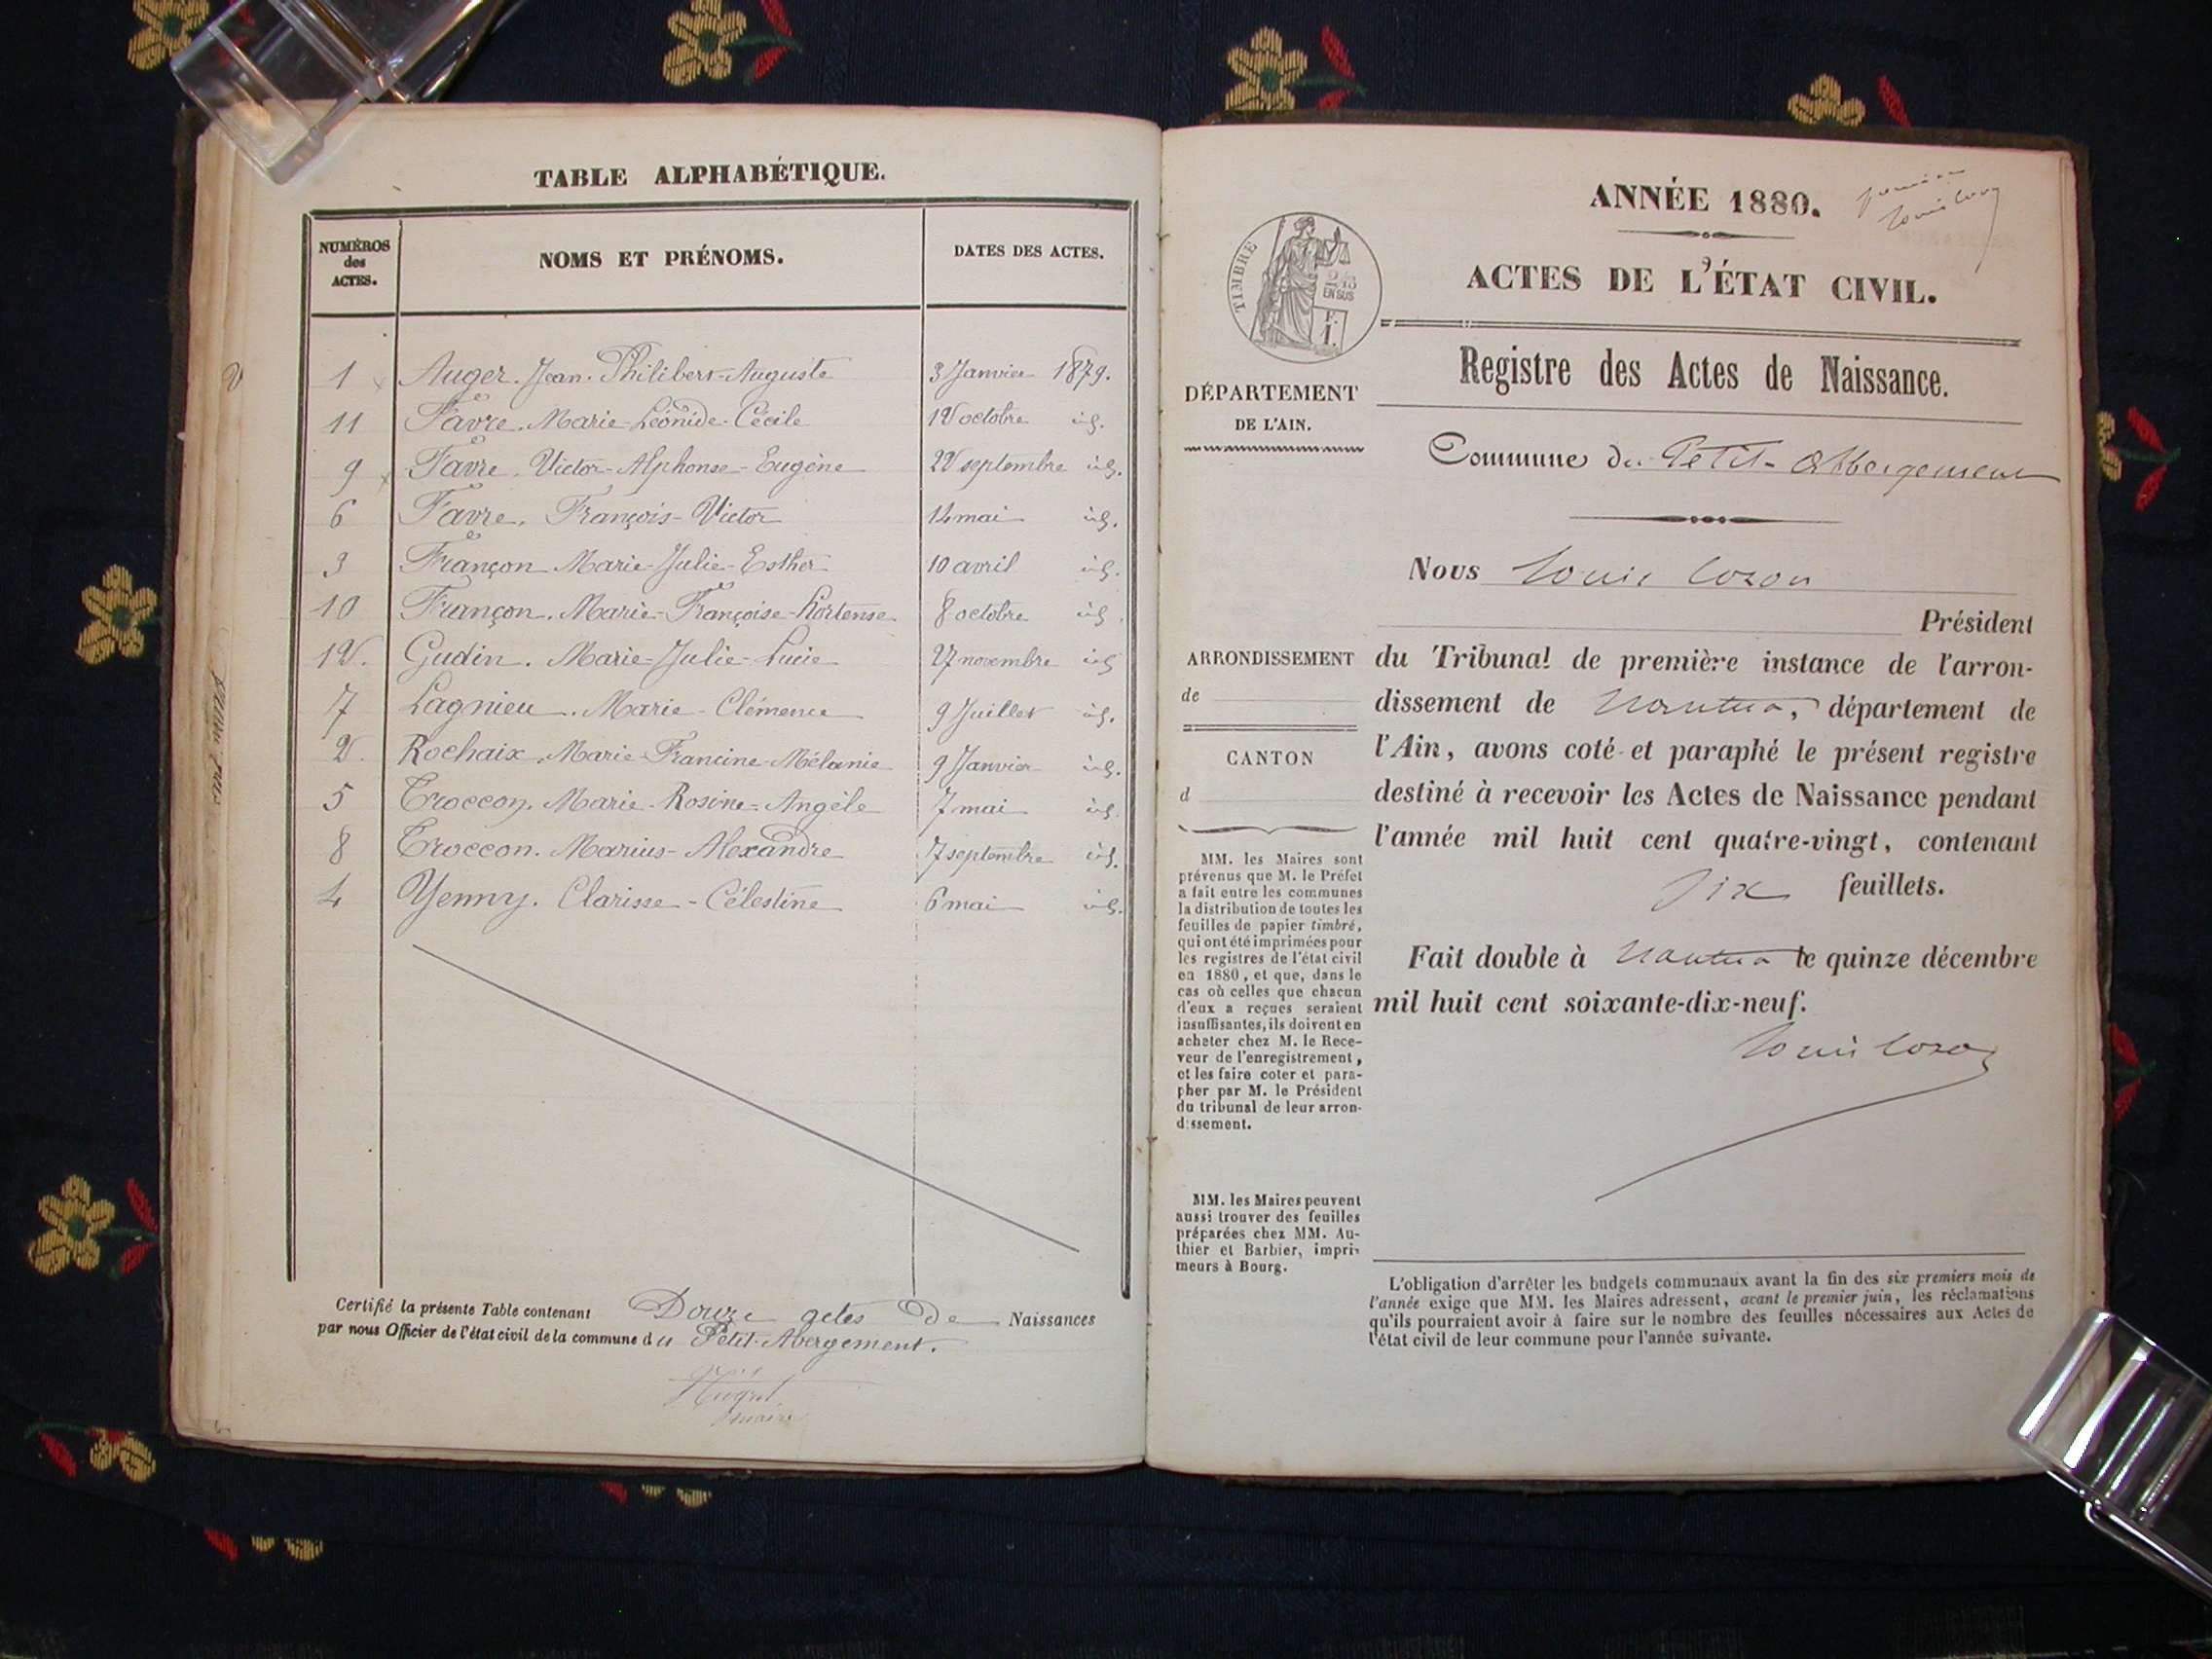 TABLE ALPHABÉTIQUE.
NUMÉROS des ACTES.
NOMS ET PRÉNOMS.
DATES DES ACTES.
1 Auger. Jean. Philibert-Auguste 3 Janvier 1879.
11 Favre. Marie-Léonide-Cécile 12 octobre id.
9 Favre. Victor-Alphonse-Eugène 22 septembre id.
6 Favre. François-Victor 14 mai id.
3 Françon Marie-Julie-Esther 10 avril id.
10 Françon. Marie-Françoise-Hortense 8 octobre id.
12. Gudin. Marie-Julie-Lucie 27 novembre id
7 Lagnieu. Marie-Clémence 9 Juillet id.
2. Rochaix. Marie-Francine-Mélanie 9 Janvier id.
5 Troccon. Marie-Rosine-Angèle 7 mai id.
8 Troccon. Marius-Alexandre 7 septembre id.
4 Yenny. Clarisse-Célestine 6 mai id.
Certifié la présente Table contenant Douze actes de Naissances
par nous Officier de l'état civil de la commune du Petit-Abergement.
maire
ANNÉE 1880.
TIMBRE
2/10
EN SUS
F.
1.
ACTES DE L'ÉTAT CIVIL.
Registre des Actes de Naissance.
DÉPARTEMENT
DE L'AIN.
Commune du Petit-Abbergement
Nous Louis Cozon
Président
du Tribunal de première instance de l'arron-
dissement de Nantua, département de
l'Ain, avons coté et paraphé le présent registre
destiné à recevoir les Actes de Naissance pendant
l'année mil huit cent quatre-vingt, contenant
six feuillets.
Fait double à Nantua le quinze décembre
mil huit cent soixante-dix-neuf.
Louis Cozon
ARRONDISSEMENT
de
CANTON
d
MM. les Maires sont
prévenus que M. le Préfet
a fait entre les communes
la distribution de toutes les
feuilles de papier timbré,
qui ont été imprimées pour
les registres de l'état civil
en 1880, et que, dans le
cas où celles que chacun
d'eux a reçues seraient
insuffisantes, ils doivent en
acheter chez M. le Rece-
veur de l'enregistrement,
et les faire coter et para-
pher par M. le Président
du tribunal de leur arron-
dissement.
MM. les Maires peuvent
aussi trouver des feuilles
préparées chez MM. Au-
thier et Barbier, impri-
meurs à Bourg.
L'obligation d'arrêter les budgets communaux avant la fin des six premiers mois de
l'année exige que MM. les Maires adressent, avant le premier juin, les réclamations
qu'ils pourraient avoir à faire sur le nombre des feuilles nécessaires aux Actes de
l'état civil de leur commune pour l'année suivante.